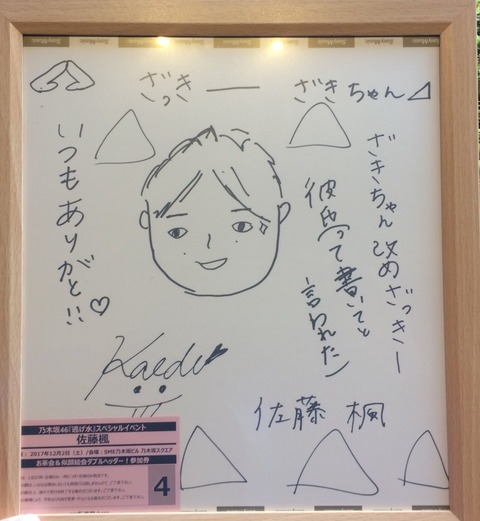 ざっきー
ざきちゃん
いつもありがと!!♡
ざきちゃん改めざっきー
彼氏って書いてと
言われた)
Kaede
佐藤楓
乃木坂46「逃げ水」スペシャルイベント
佐藤楓
2017年12月2日(土)/会場:SME乃木坂ビル 乃木坂スクエア
お茶会&似顔絵会ダブルヘッダー!参加券
4